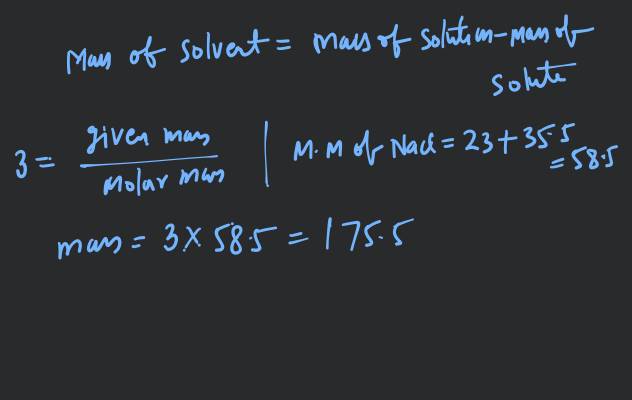 Mass of solvent = mass of solution - mass of
solute
3 = given mass / Molar mass | M.M of Nacl = 23 + 35.5
= 58.5
mass = 3 × 58.5 = 175.5